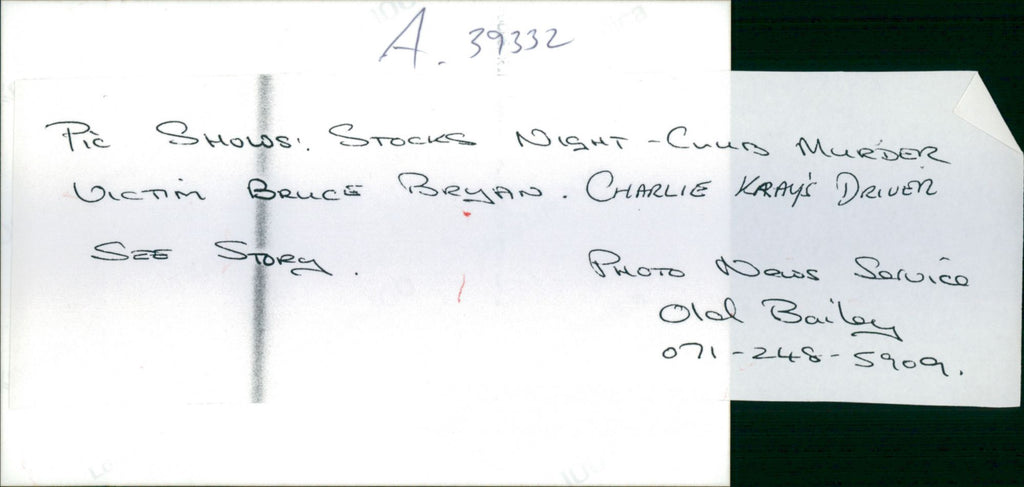 A. 39332
Pic Shows: Stocks Night-Club Murder
Victim Bruce Bryan. Charlie Kray's Driver
See Story.
Photo News Service
Old Bailey
071-248-5909.